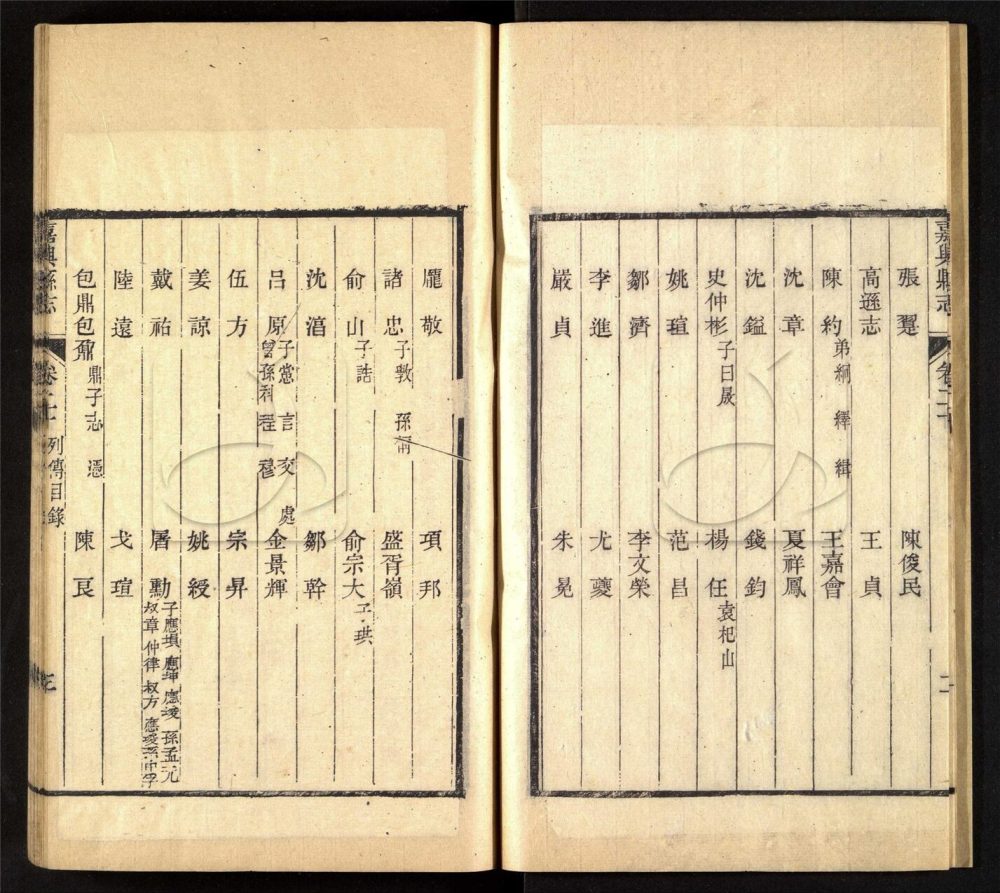 嘉興縣志 卷二十 二
張翼 陳俊民
高遜志 王貞
陳約 弟綱 繹 緝 王嘉會
沈章 夏祥鳳
沈鎰 錢鈞
史仲彬 子曰晟 楊任 袁杞山
姚瑄 范昌
鄒濟 李文榮
李進 尤夔
嚴貞 朱冕
龎敬 項邦
諸忠 子斆 孫 盛胥嶺
俞山 子誥 俞宗大 子珙
沈㴞 鄒幹
呂原 子㦂 言 交 處 曾孫科 程 穆 金景輝
伍方 宗昇
姜諒 姚綬
戴祐 屠勳 子應塤 應坤 應埈 孫孟元 叔章 仲律 叔方 應埈孫中孚
陸遠 戈瑄
包鼎包鼐 鼎子志 憑 陳良
嘉興縣志 卷二十 列傳目錄 三